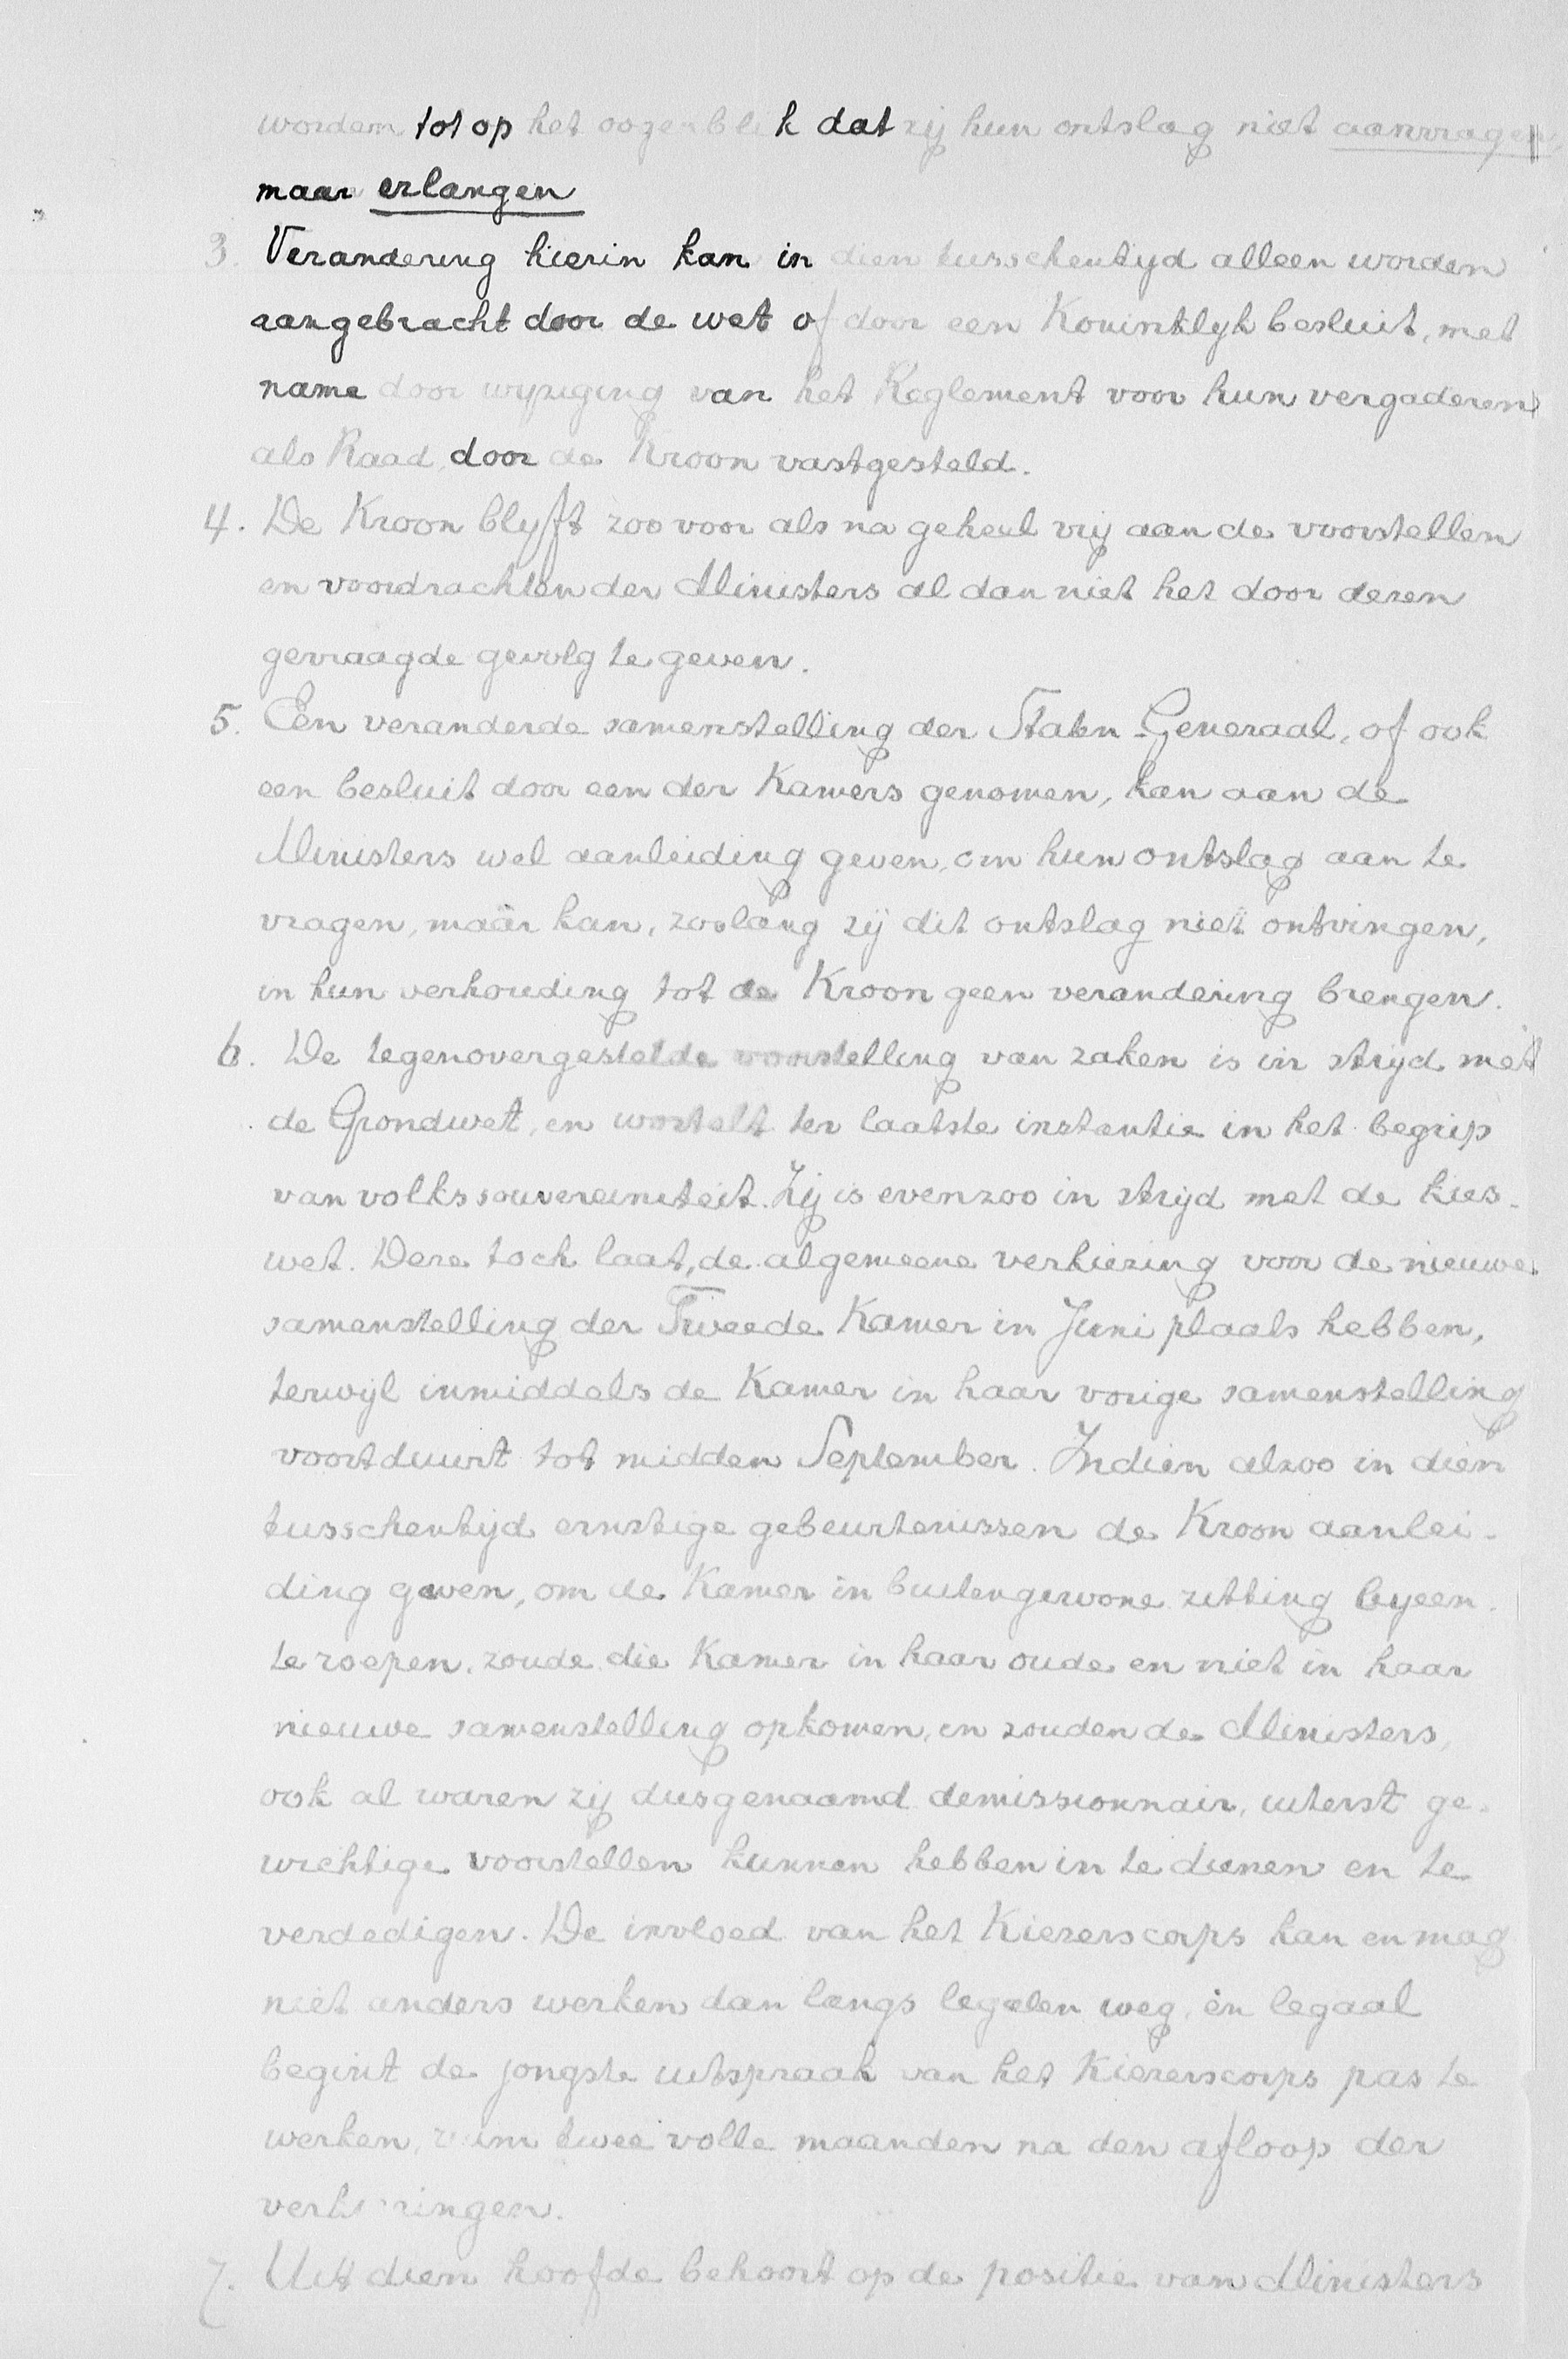 worden tot op het oogenblik dat zij hun ontslag niet aanvragen,
maar erlangen
3. Verandering hierin kan in dien tusschentijd alleen worden
aangebracht door de wet of door een Koninklyk besluit, met
name door wyziging van het Reglement voor hun vergaderen
als Raad, door de Kroon vastgesteld.
4. De Kroon blyft zoo voor als na geheel vrij aan de voorstellen
en voordrachten der Ministers al dan niet het door dezen
gevraagde gevolg te geven.
5. Een veranderde samenstelling der Staten-Generaal, of ook
een besluit door een der Kamers genomen, kan aan de
Ministers wel aanleiding geven, om hun ontslag aan te
vragen, maar kan, zoolang zij dit ontslag niet ontvingen,
in hun verhouding tot de Kroon geen verandering brengen.
6. De tegenovergestelde voorstelling van zaken is in strijd met
de Grondwet, en wortelt ter laatste instantie in het begrip
van volkssouvereiniteit. Zij is evenzoo in strijd met de kies-
wet. Deze toch laat, de algemeene verkiezing voor de nieuwe
samenstelling der Tweede Kamer in Juni plaats hebben,
terwijl inmiddels de Kamer in haar vorige samenstelling
voortduurt tot midden September. Indien alzoo in dien
tusschentijd ernstige gebeurtenissen de Kroon aanlei-
ding gaven, om de Kamer in buitengewone zitting byeen
te roepen, zoude die Kamer in haar oude en niet in haar
nieuwe samenstelling opkomen, en zouden de Ministers,
ook al waren zij dusgenaamd demissionnair, uiterst ge-
wichtige voorstellen kunnen hebben in te dienen en te
verdedigen. De invloed van het Kiezerscorps kan en mag
niet anders werken dan langs legalen weg, en legaal
begint de jongste uitspraak van het Kiezerscorps pas te
werken, ruim twee volle maanden na den afloop der
verkiezingen.
7. Uit dien hoofde behoort op de positie van Ministers